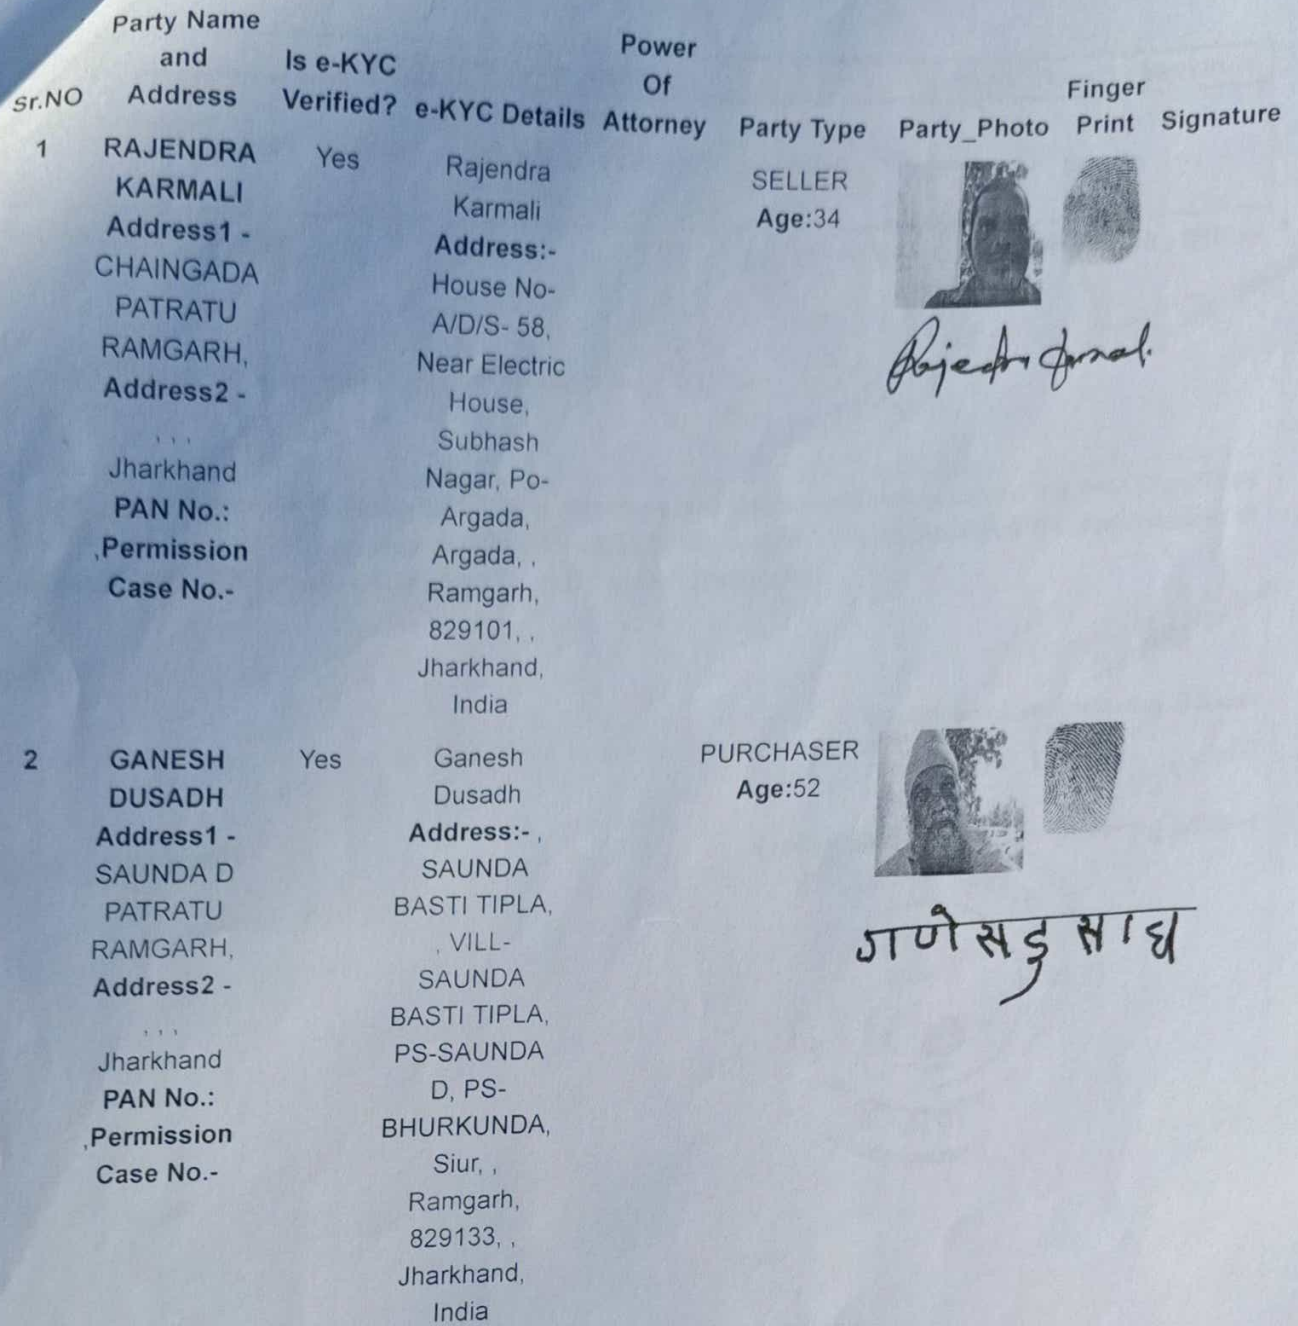 Sr.NO Party Name and Address Is e-KYC Verified? e-KYC Details Power Of Attorney Party Type Party_Photo Finger Print Signature
1
RAJENDRA
KARMALI
Address1 -
CHAINGADA
PATRATU
RAMGARH,
Address2 -
, , ,
Jharkhand
PAN No.:
,Permission
Case No.-
Yes
Rajendra
Karmali
Address:-
House No-
A/D/S- 58,
Near Electric
House,
Subhash
Nagar, Po-
Argada,
Argada, ,
Ramgarh,
829101, ,
Jharkhand,
India
SELLER
Age:34
2
GANESH
DUSADH
Address1 -
SAUNDA D
PATRATU
RAMGARH,
Address2 -
, , ,
Jharkhand
PAN No.:
,Permission
Case No.-
Yes
Ganesh
Dusadh
Address:- ,
SAUNDA
BASTI TIPLA,
, VILL-
SAUNDA
BASTI TIPLA,
PS-SAUNDA
D, PS-
BHURKUNDA,
Siur, ,
Ramgarh,
829133, ,
Jharkhand,
India
PURCHASER
Age:52
गणेसदुसाध